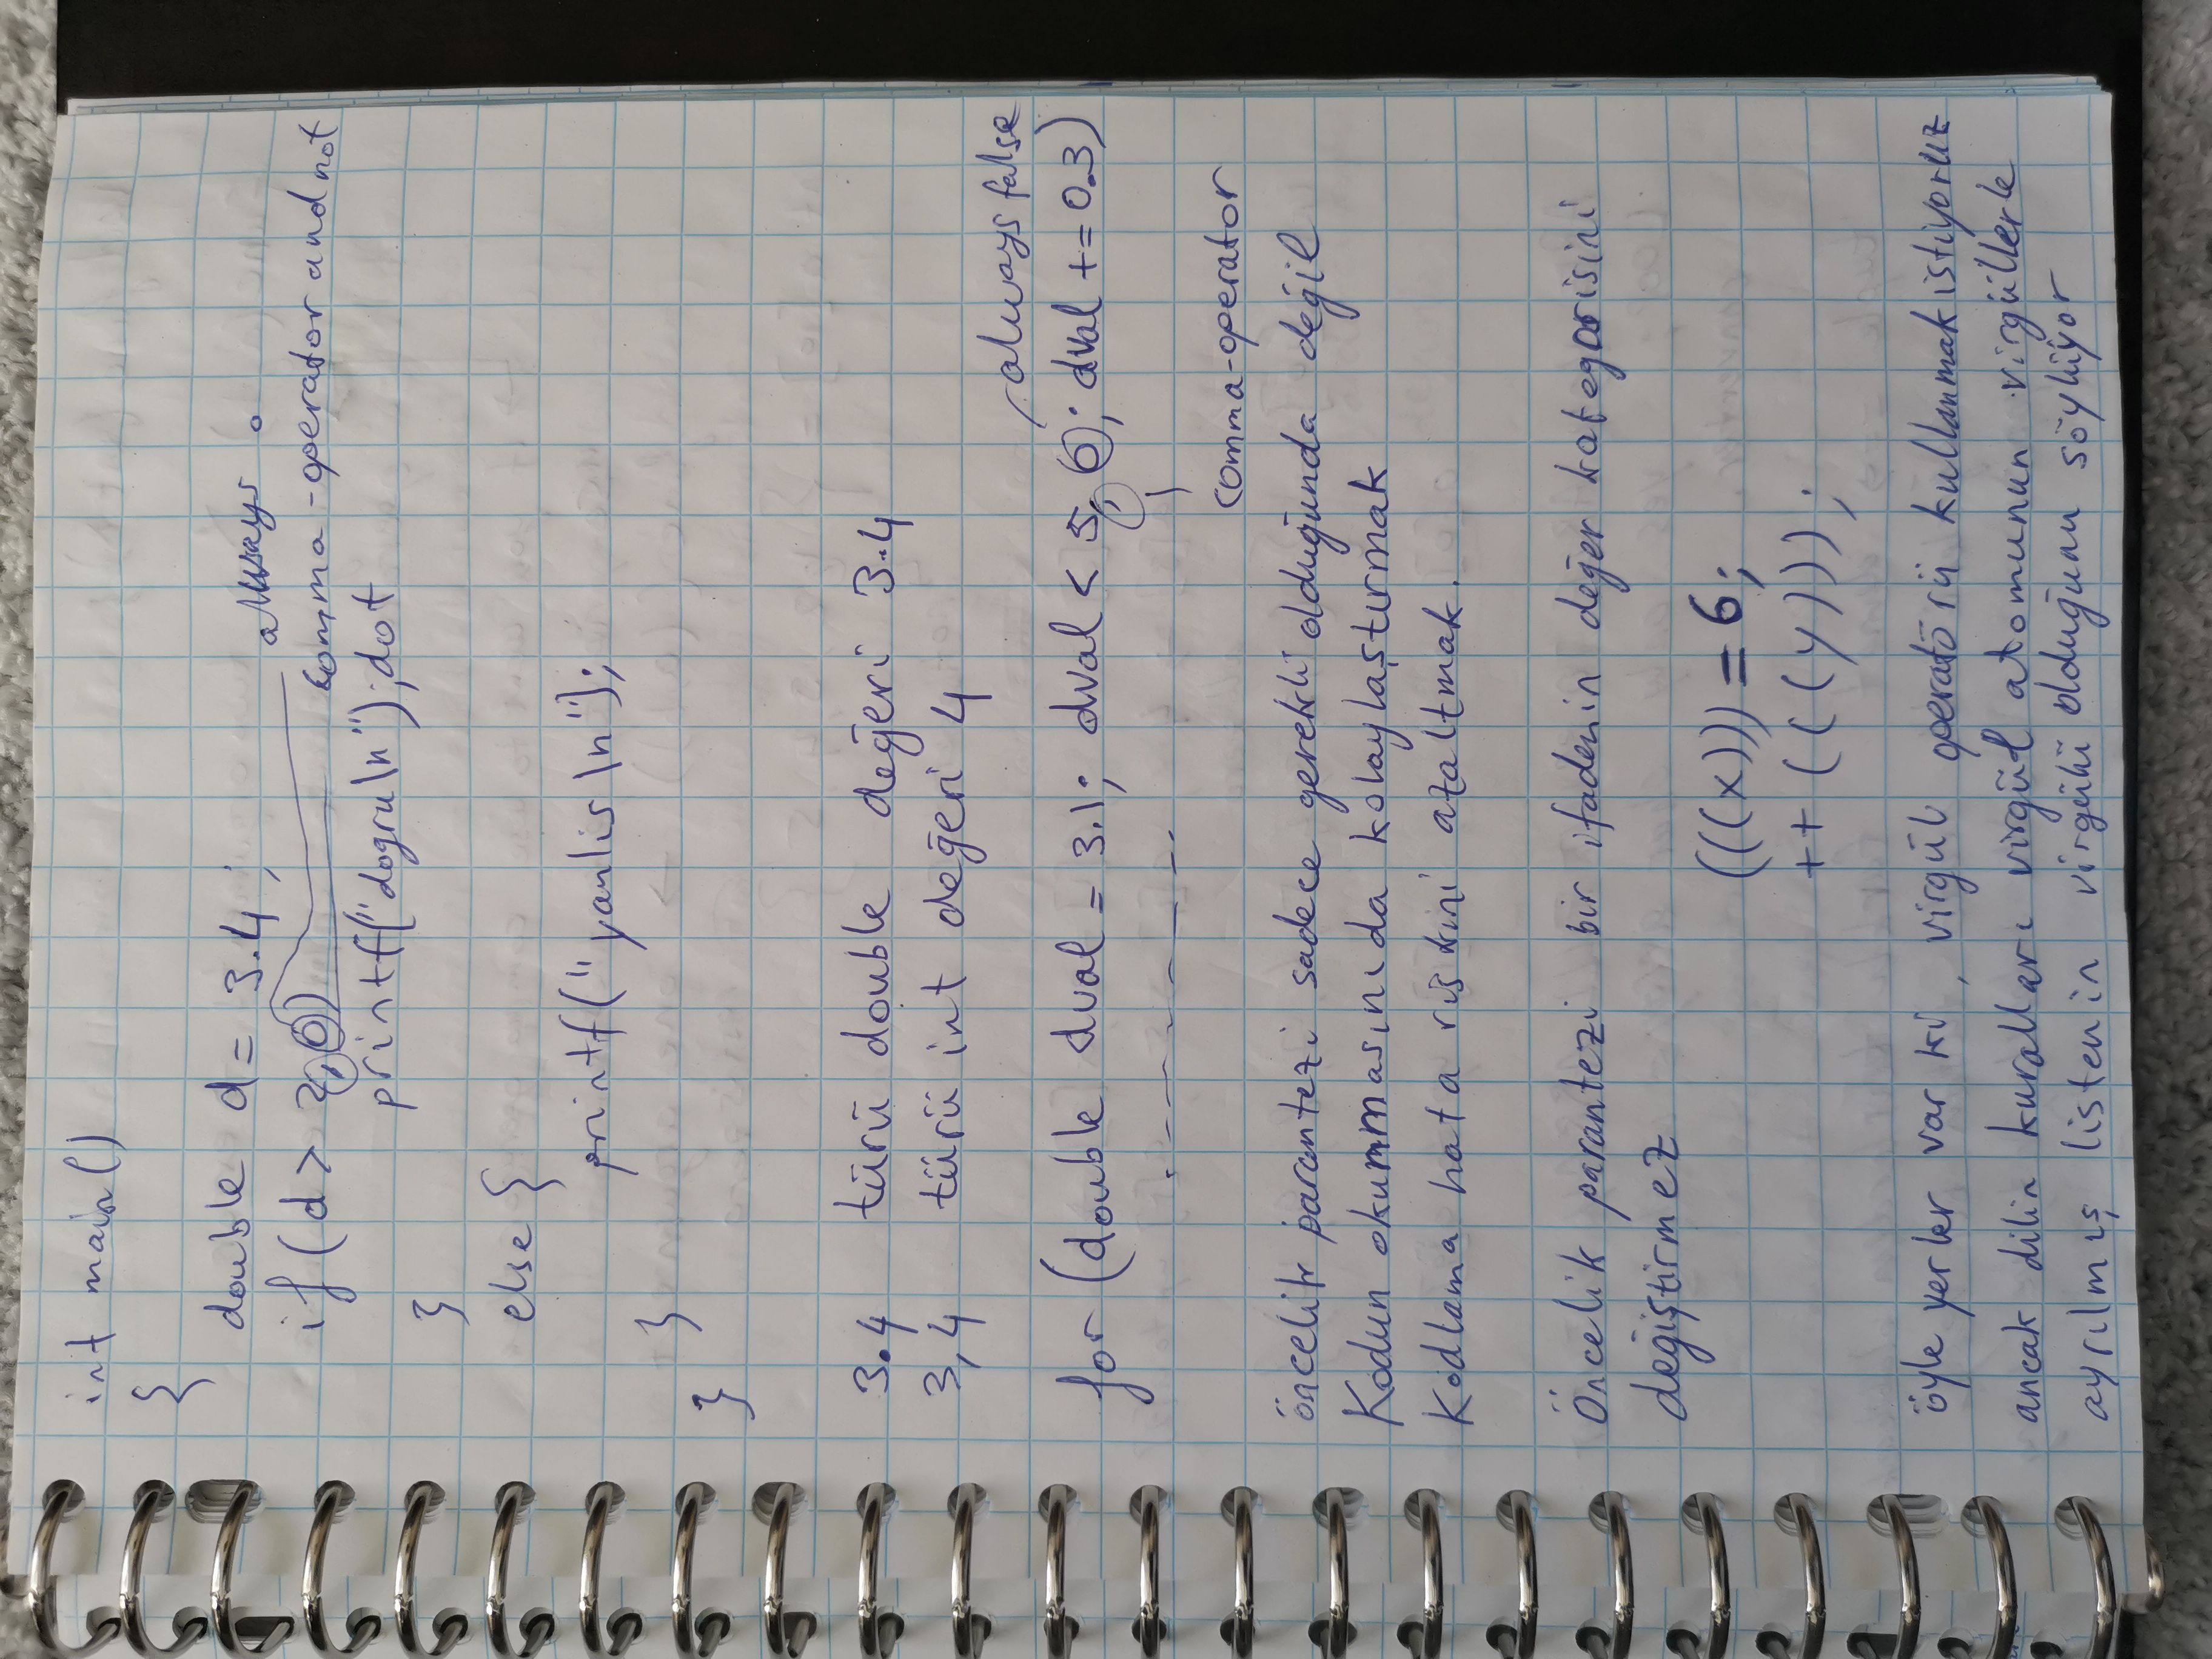 int main()
{
double d = 3.4;
always 0
if (d > 2,0)
comma-operator and not
printf("dogru\n"); dot
}
else {
printf("yanlis\n");
}
}
3.4 türü double değeri 3.4
3,4 türü int değeri 4
always false
for (double dval = 3.1; dval < 5,0; dval += 0.3)
comma-operator
öncelik parantezi sadece gerekli olduğunda değil
Kodun okunmasınıda kolaylaştırmak
Kodlama hata riskini azaltmak.
Öncelik parantezi bir ifadenin değer kategorisini
değiştirmez
(((x))) = 6;
++(((y)));
öyle yerler var ki, virgül operatörü kullanmak istiyoruz
ancak dilin kuralları virgül atomunun virgüllerle
ayrılmış listenin virgülü olduğunu söylüyor